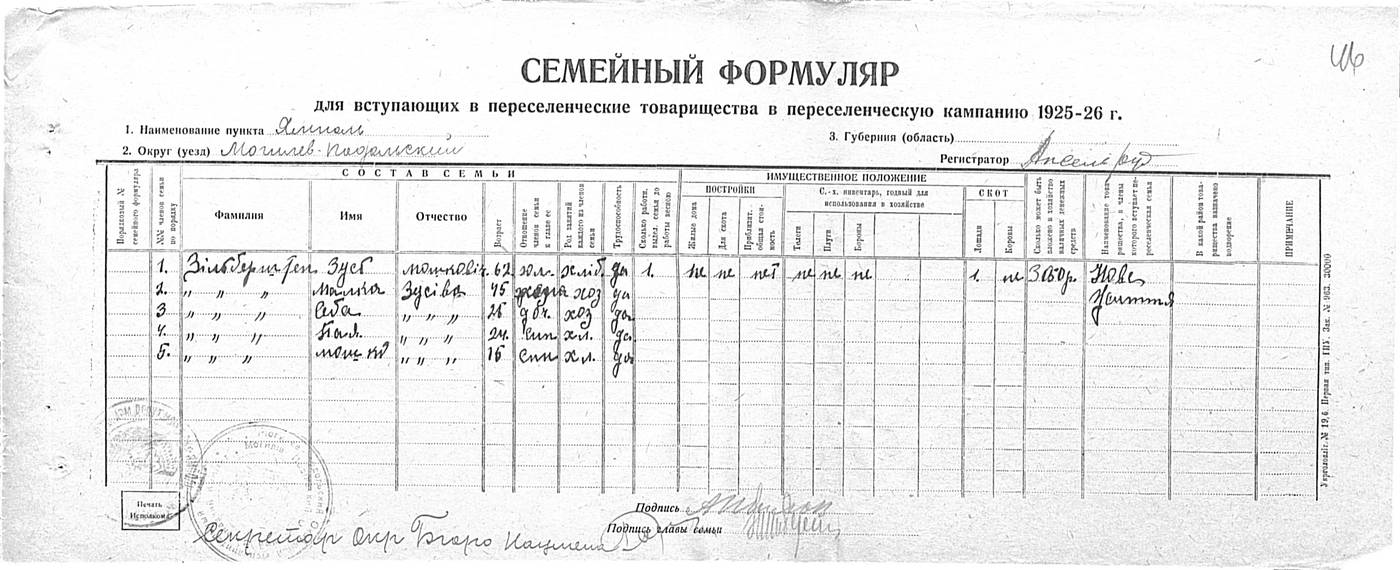 46
СЕМЕЙНЫЙ ФОРМУЛЯР
для вступающих в переселенческие товарищества в переселенческую кампанию 1925-26 г.
1. Наименование пункта
3. Губерния (область)
2. Округ (уезд) Могилев-Подольский
Регистратор
СОСТАВ СЕМЬИ
ИМУЩЕСТВЕННОЕ ПОЛОЖЕНИЕ
Порядковый № семейного формуляра
№№ членов семьи по порядку
Фамилия
Имя
Отчество
Возраст
Отношение членов семьи к главе ее
Род занятий каждого из членов семьи
Трудоспособность
Сколько работн. выдел. семья до работы весною
ПОСТРОЙКИ
Жилые дома
Для скота
Приблизит. общая стоимость
С.-х. инвентарь, годный для использования в хозяйстве
Телеги
Плуги
Бороны
СКОТ
Лошади
Коровы
Сколько может быть вложено в хозяйство наличных денежных средств
Наименование товарищества, в члены которого вступает переселенческая семья
В какой район товарищества назначено водворение
ПРИМЕЧАНИЕ
1. Зусь 62 хліб да 1. не не нет не не не 1. не Нове
2. „ „ „ Малка Зусівна 45 хоз да Життя
3 „ „ „ „ „ „ доч. хоз да
4. „ „ „ „ „ „ 24. син хл. да
5. „ „ „ „ „ „ 15 син хл. да
Печать Исполкома
Подпись
Подпись главы семьи
Секретар Окр Бюро Нацмена
Укрголовліт. № 19,6. Первая тип. ГПУ. Зак. № 963. 30000